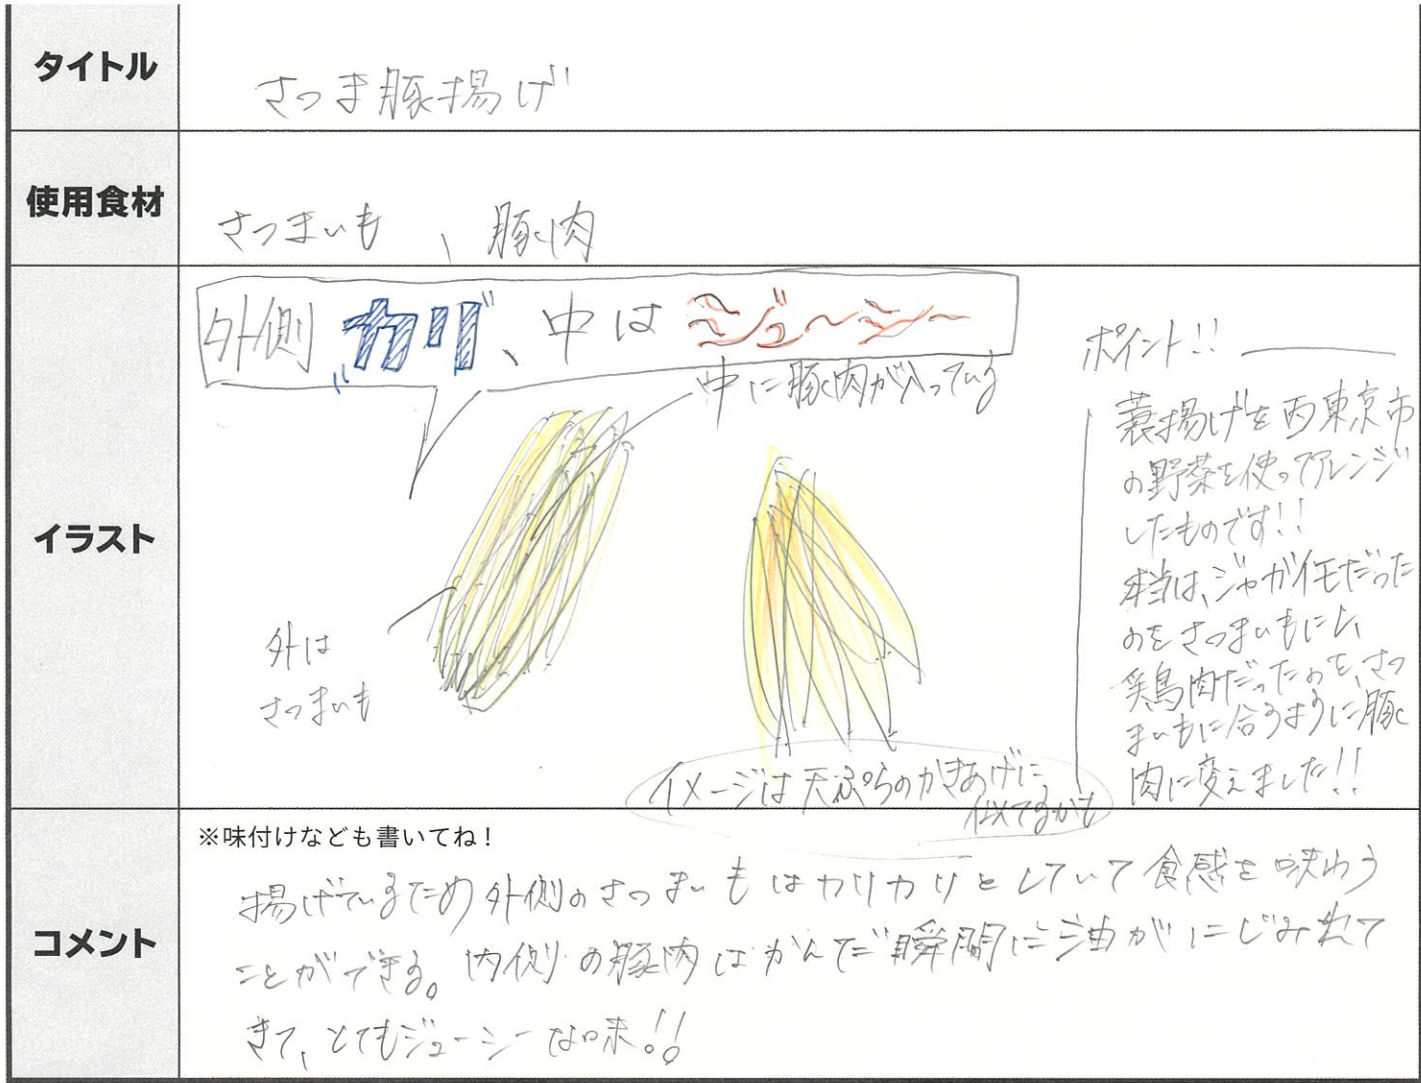 タイトル
さつま豚揚げ
使用食材
さつまいも、豚肉
イラスト
外側"カリ"、中はジューシー
中に豚肉が入っている
外は
さつまいも
イメージは天ぷらのかきあげに
似てるかも
ポイント!!
蓑揚げを西東京市
の野菜を使ってアレンジ
したものです!!
本当は、ジャガイモだった
のをさつまいもにし、
鶏肉だったのを、さつ
まいもに合うように豚
肉に変えました!!
コメント
※味付けなども書いてね！
揚げているため外側のさつまいもはカリカリとしていて食感を味わう
ことができる。内側の豚肉はかんだ瞬間に油がにじみ出て
きて、とてもジューシーな味!!